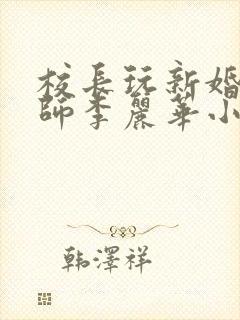 校長玩新婚
師李麗華小
韩澤祥